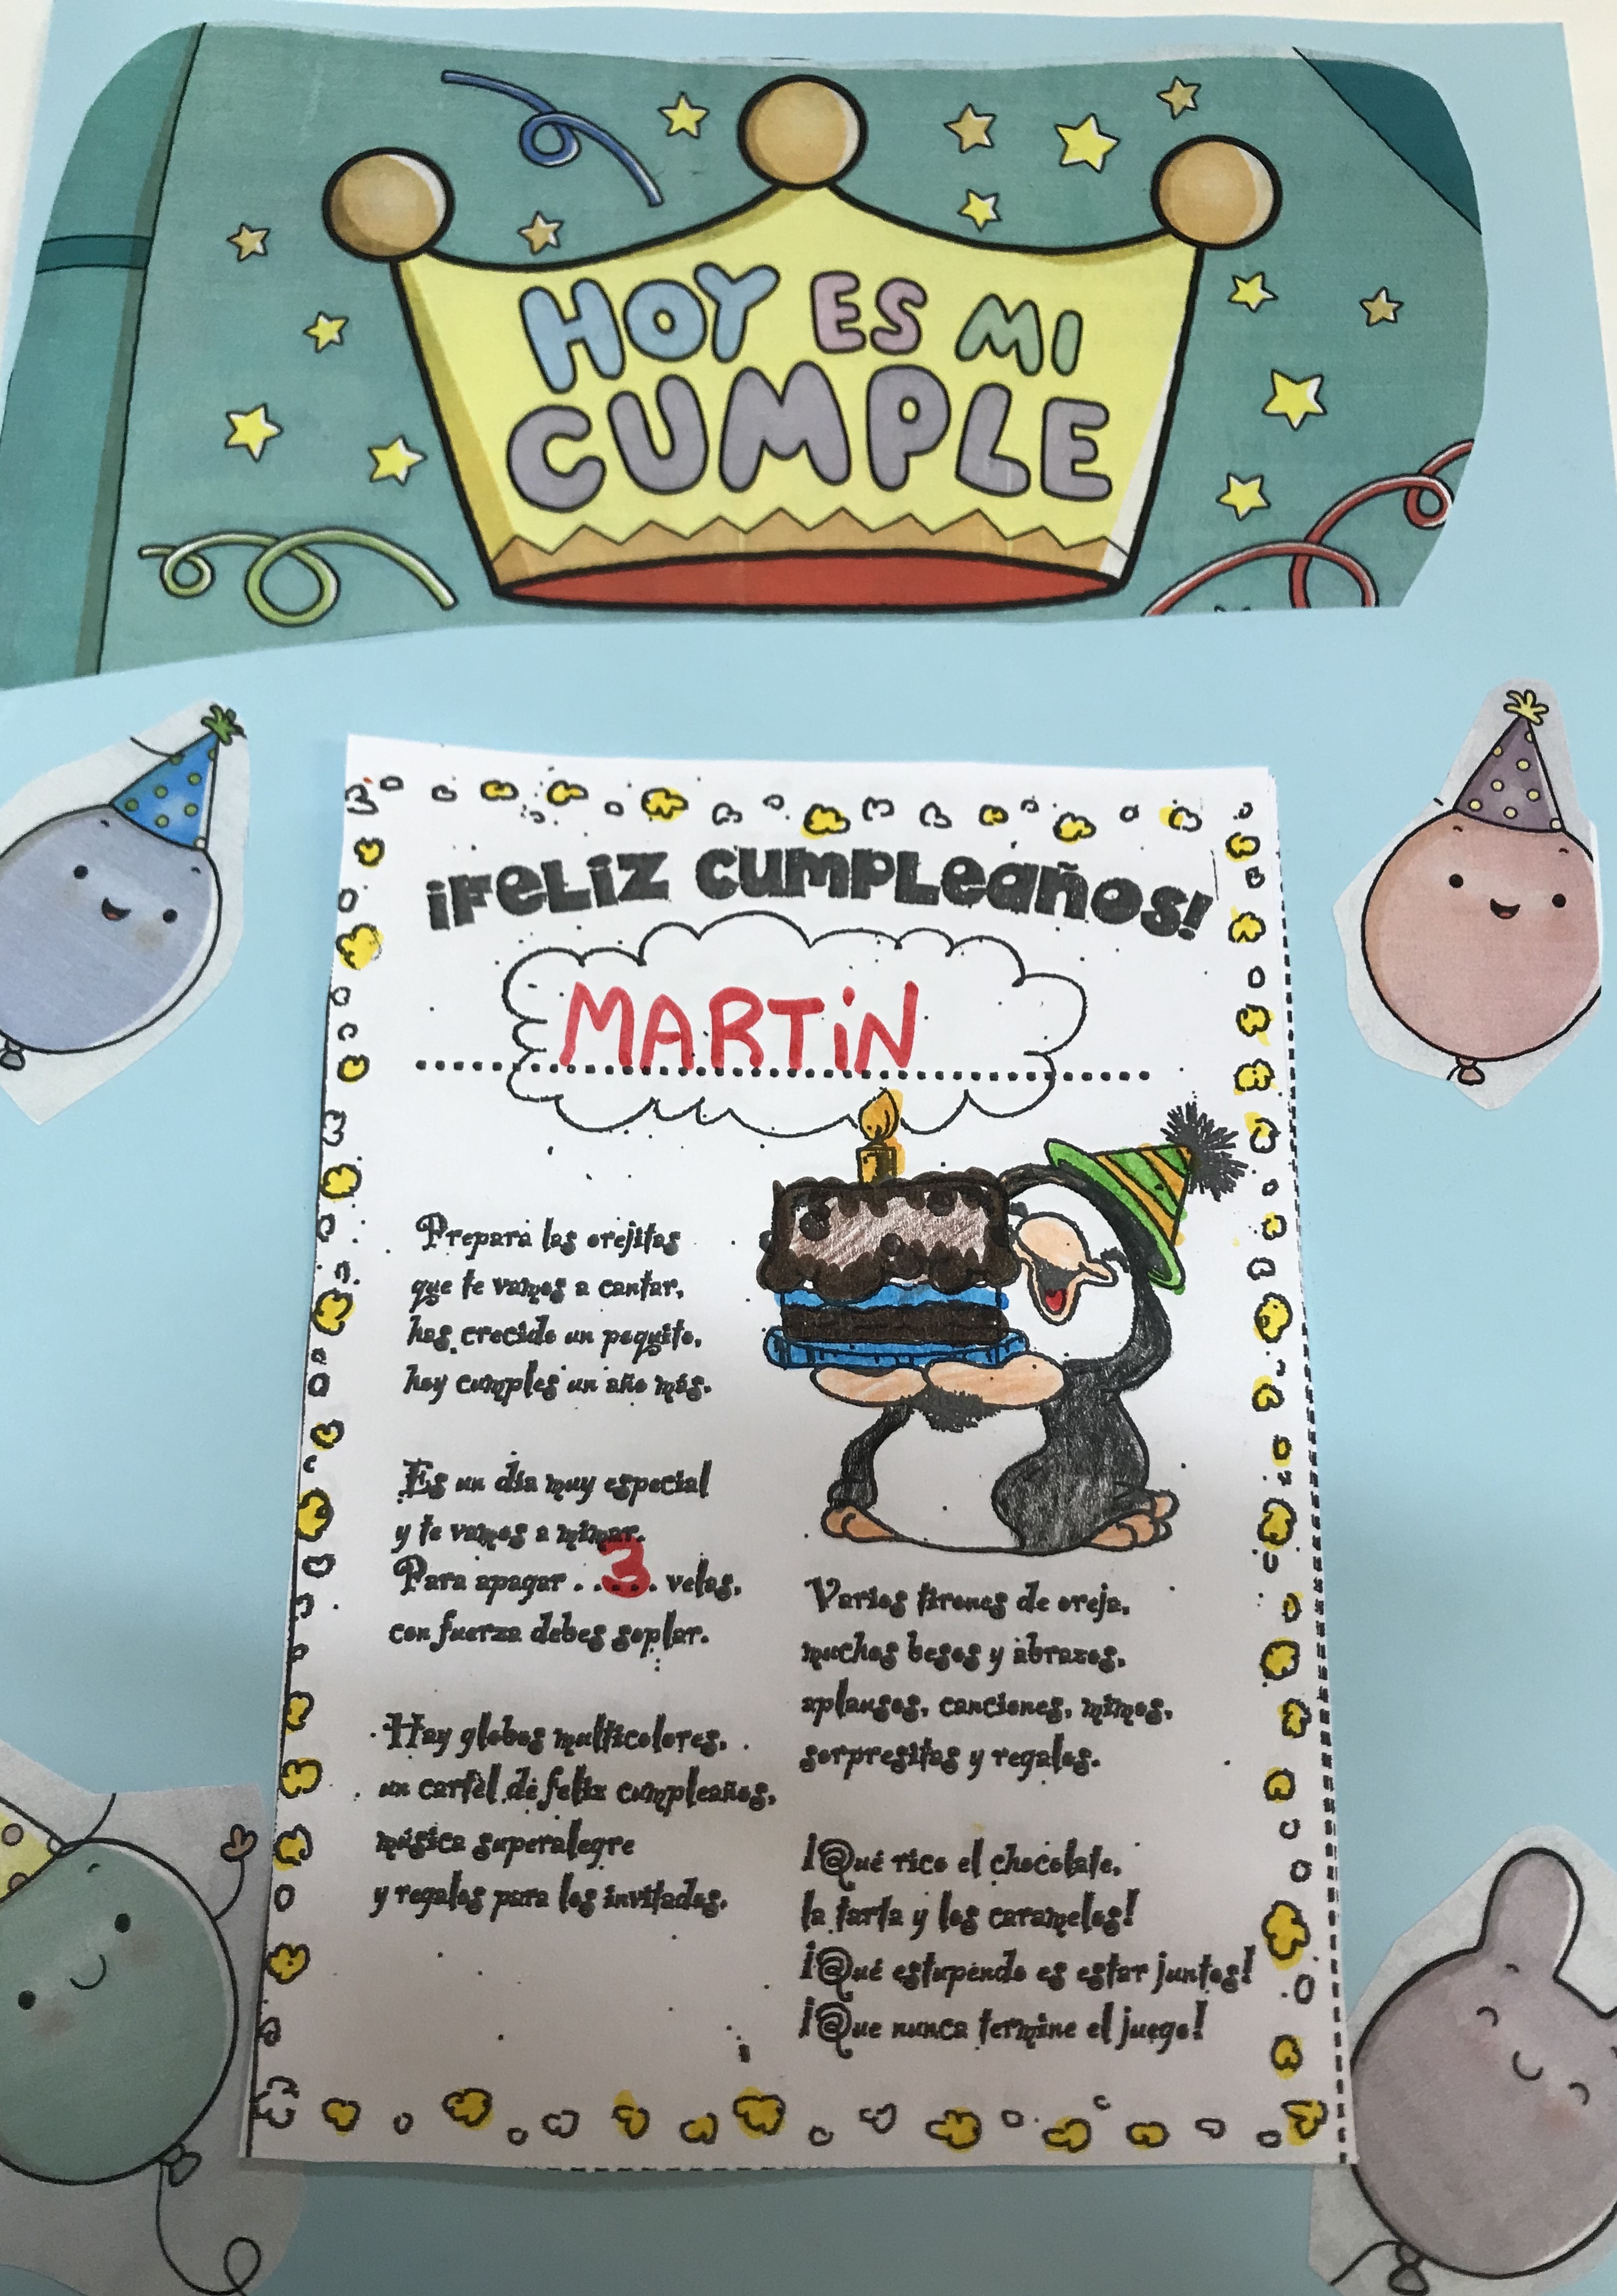 HOY ES MI
CUMPLE
¡FELIZ CUMPLEAÑOS!
MARTiN
Prepara las orejitas
que te vamos a cantar,
has crecido un poquito,
hoy cumples un año más.
Es un día muy especial
y te vamos a mimar.
Para apagar ..3.. velas,
con fuerza debes soplar.
Hay globos multicolores,
un cartel de feliz cumpleaños,
música superalegre
y regalos para los invitados.
Varios tirones de oreja,
muchos besos y abrazos,
aplausos, canciones, mimos,
sorpresitas y regalos.
¡Qué rico el chocolate,
la tarta y los caramelos!
¡Qué estupendo es estar juntos!
¡Que nunca termine el juego!